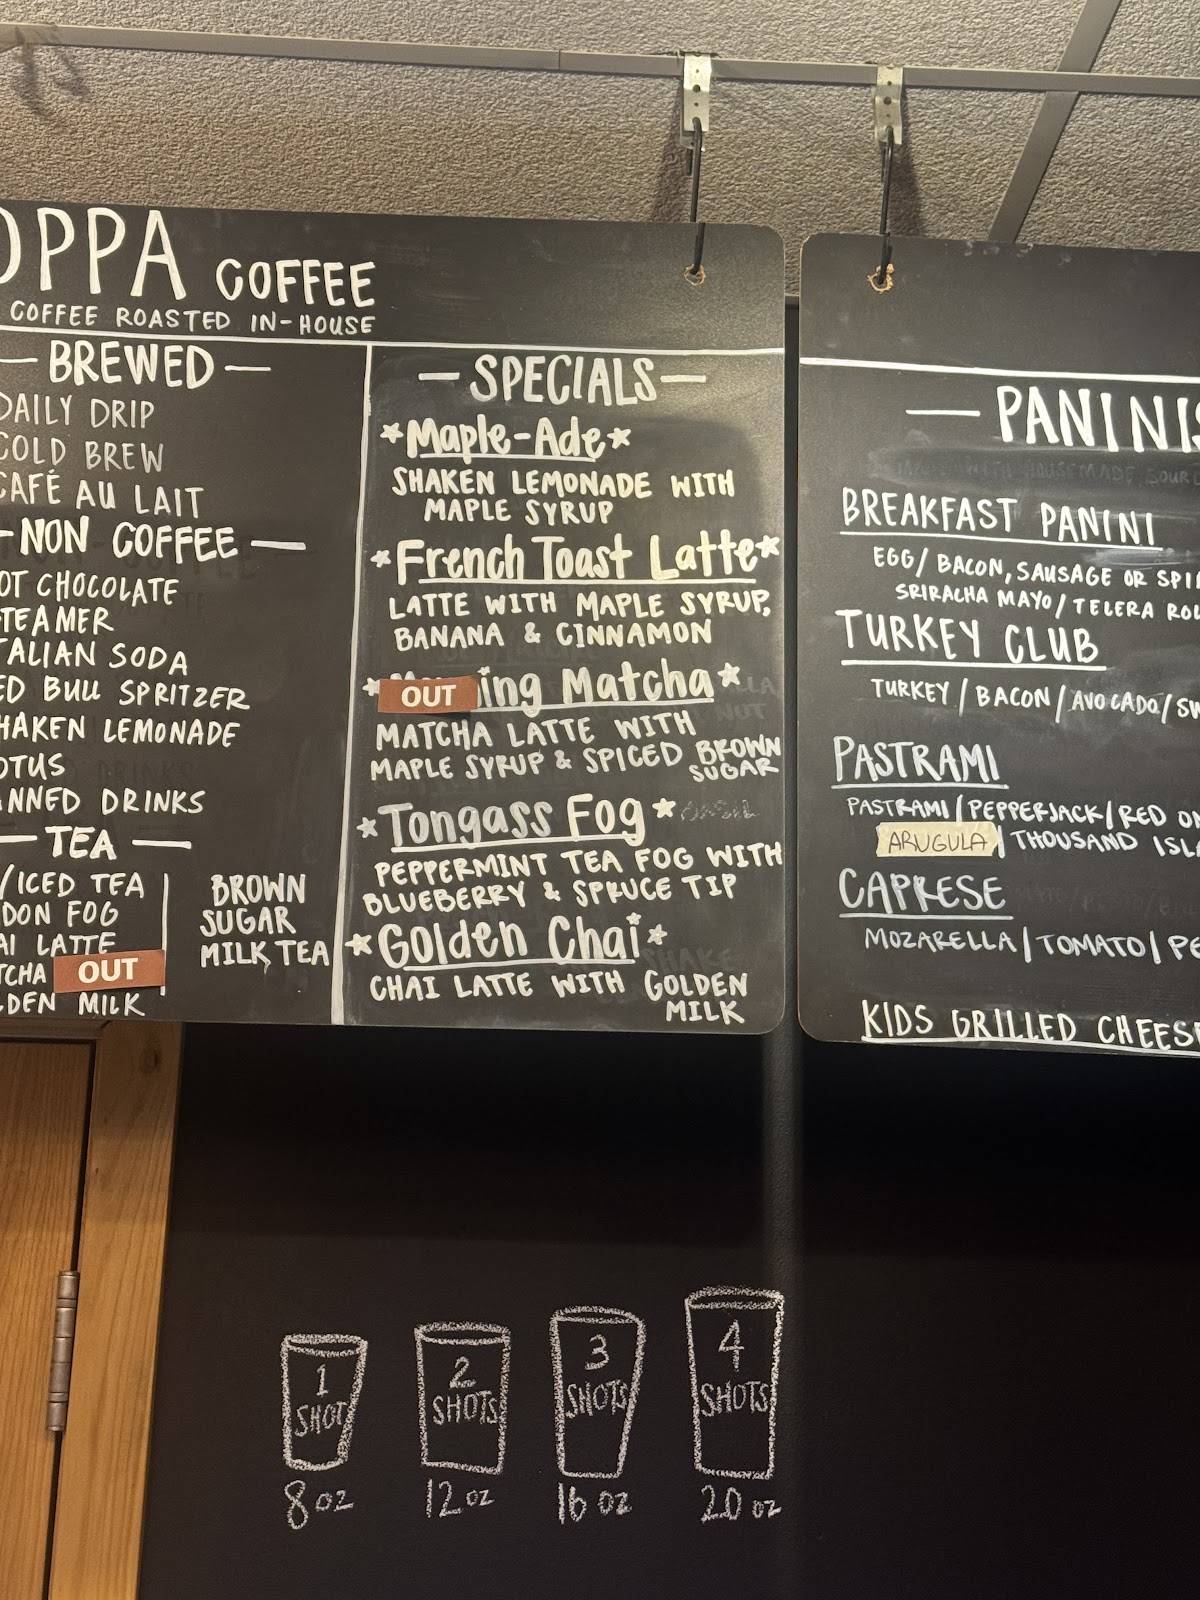 OPPA COFFEE
COFFEE ROASTED IN-HOUSE
— BREWED —
DAILY DRIP
COLD BREW
CAFÉ AU LAIT
- NON COFFEE —
OT CHOCOLATE
TEAMER
TALIAN SODA
ED BULL SPRITZER
HAKEN LEMONADE
OTUS
ANNED DRINKS
— TEA —
/ICED TEA
DON FOG
AI LATTE
TCHA OUT
LDEN MILK
BROWN
SUGAR
MILK TEA
— SPECIALS —
*Maple-Ade*
SHAKEN LEMONADE WITH
MAPLE SYRUP
*French Toast Latte*
LATTE WITH MAPLE SYRUP,
BANANA & CINNAMON
OUT ing Matcha*
MATCHA LATTE WITH
MAPLE SYRUP & SPICED BROWN
SUGAR
*Tongass Fog*
PEPPERMINT TEA FOG WITH
BLUEBERRY & SPRUCE TIP
*Golden Chai*
CHAI LATTE WITH GOLDEN
MILK
— PANINIS
BREAKFAST PANINI
EGG/ BACON, SAUSAGE OR SPI
SRIRACHA MAYO/ TELERA ROL
TURKEY CLUB
TURKEY/ BACON/ AVOCADO/ SW
PASTRAMI
PASTRAMI/ PEPPERJACK/ RED ON
ARUGULA / THOUSAND ISLA
CAPRESE
MOZARELLA/ TOMATO/ PE
KIDS GRILLED CHEESE
1 SHOT
8 oz
2 SHOTS
12 oz
3 SHOTS
16 oz
4 SHOTS
20 oz